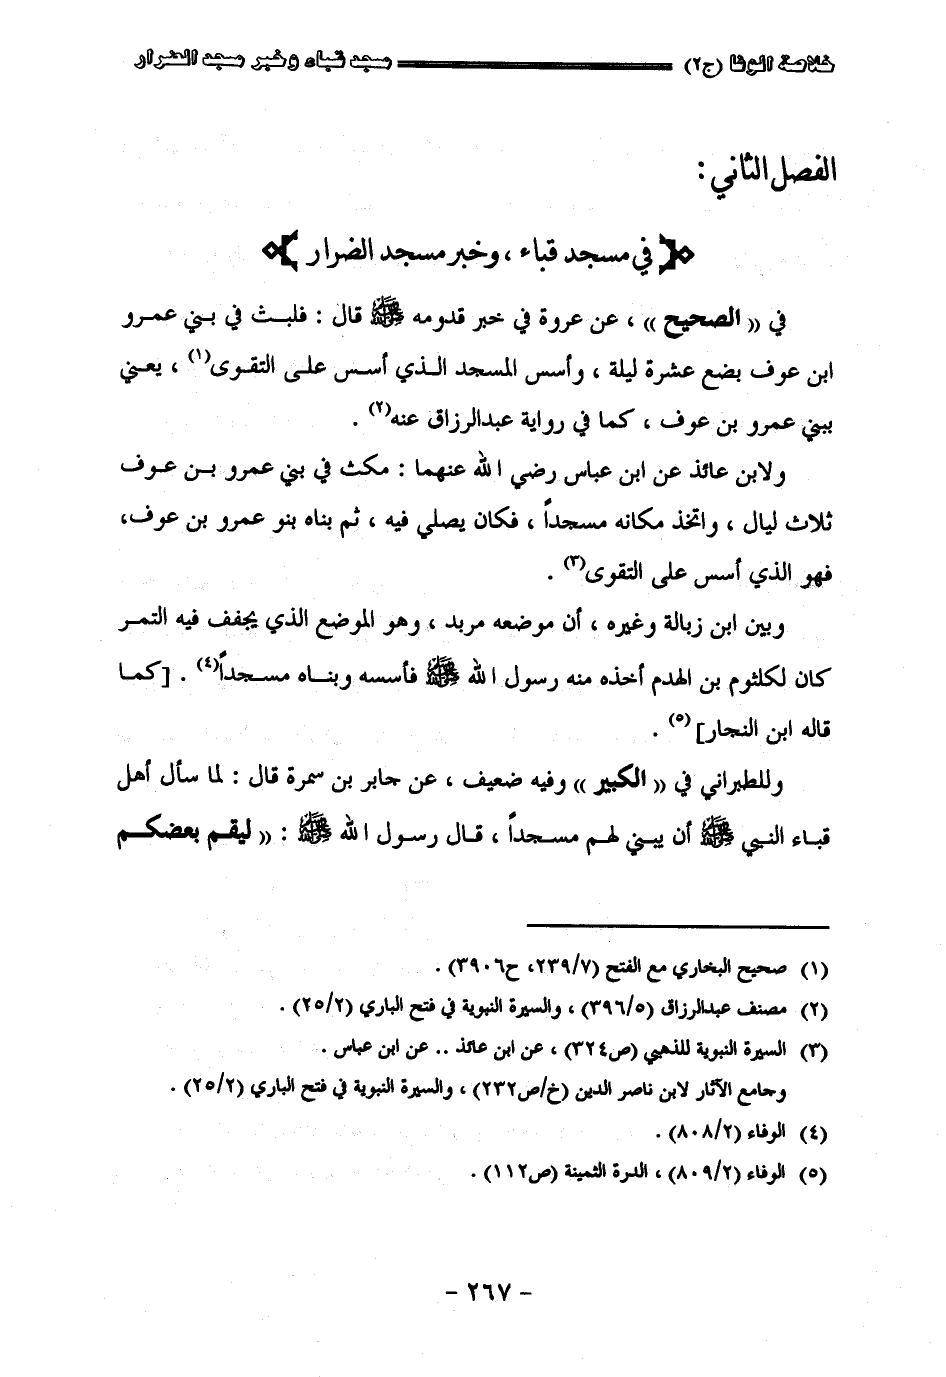 خلاصة الوفا (ج٢) مسجد قباء وخبر مسجد الضرار
الفصل الثاني :
في مسجد قباء ، وخبر مسجد الضرار
في (( الصحيح )) ، عن عروة في خبر قدومه ﷺ قال : فلبث في بني عمرو
ابن عوف بضع عشرة ليلة ، وأسس المسجد الذي أسس على التقوى(١) ، يعني
ببني عمرو بن عوف ، كما في رواية عبدالرزاق عنه(٢) .
ولابن عائذ عن ابن عباس رضي الله عنهما : مكث في بني عمرو بن عوف
ثلاث ليال ، واتخذ مكانه مسجداً ، فكان يصلي فيه ، ثم بناه بنو عمرو بن عوف،
فهو الذي أسس على التقوى(٣) .
وبين ابن زبالة وغيره ، أن موضعه مربد ، وهو الموضع الذي يجفف فيه التمر
كان لكلثوم بن الهدم أخذه منه رسول الله ﷺ فأسسه وبناه مسجداً(٤) . [كما
قاله ابن النجار](٥) .
وللطبراني في (( الكبير )) وفيه ضعيف ، عن جابر بن سمرة قال : لما سأل أهل
قباء النبي ﷺ أن يبني لهم مسجداً ، قال رسول الله ﷺ : (( ليقم بعضكم
(١) صحيح البخاري مع الفتح (٢٣٩/٧، ح٣٩٠٦) .
(٢) مصنف عبدالرزاق (٣٩٦/٥) ، والسيرة النبوية في فتح الباري (٢٥/٢) .
(٣) السيرة النبوية للذهبي (ص٣٢٤) ، عن ابن عائذ .. عن ابن عباس .
وجامع الآثار لابن ناصر الدين (خ/ص٢٣٢) ، والسيرة النبوية في فتح الباري (٢٥/٢) .
(٤) الوفاء (٨٠٨/٢) .
(٥) الوفاء (٨٠٩/٢) ، الدرة الثمينة (ص١١٢) .
- ٢٦٧ -